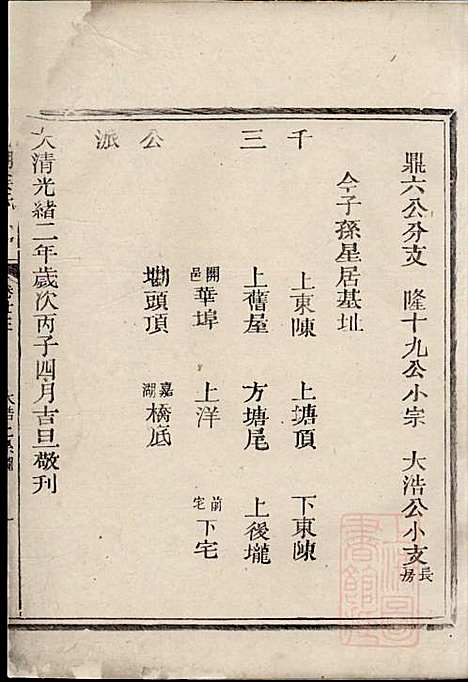 鼎六公分支 隆十九公小宗 大浩公小支長房
今子孫星居基址
千三公派
上東陳 上塘頂 下東陳
上舊屋 方塘尾 上後壠
開邑華埠 上洋 前宅下宅
坳頭頂 嘉湖橋底
大清光緒二年歲次丙子四月吉旦敬刊